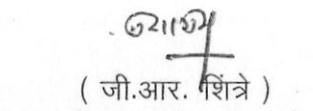 ( जी.आर. शिंत्रे )